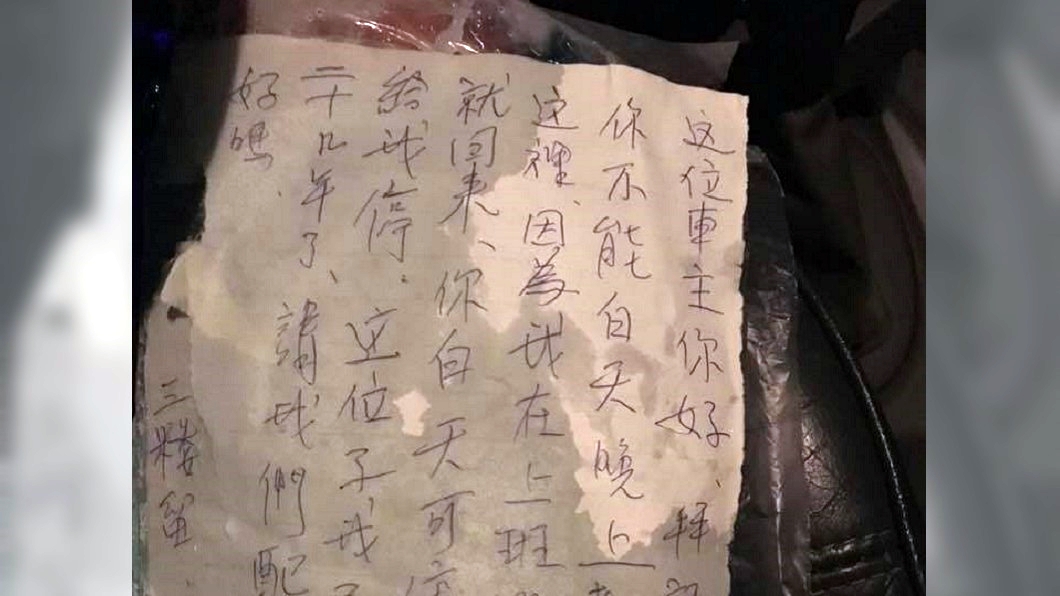 这位車主你好、拜
你不能白天晚上
这裡、因為我在上班
就回来、你白天可
給我停．这位子我
二十几年了、請我們配
好嗎．
三楼留．